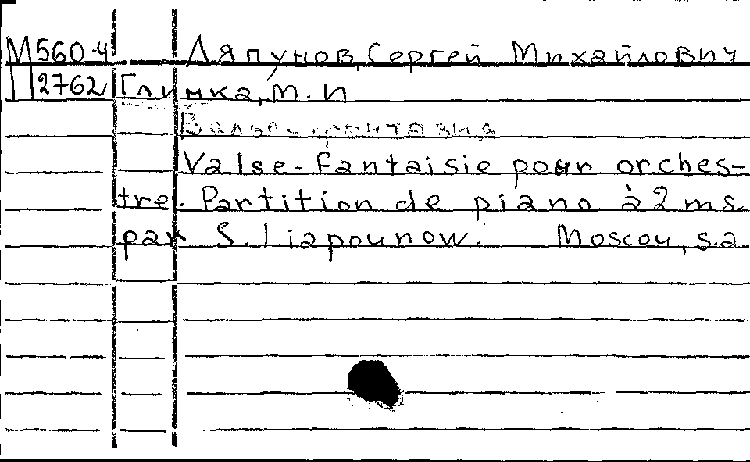 М560-4 Ляпунов, Сергей Михайлович
П2762 Глинка, М. И
Вальс-фантазия
Valse-fantaisie pour orches-
tre. Partition de piano à 2 ms.
par S. Liapounow. Moscou, s.a.